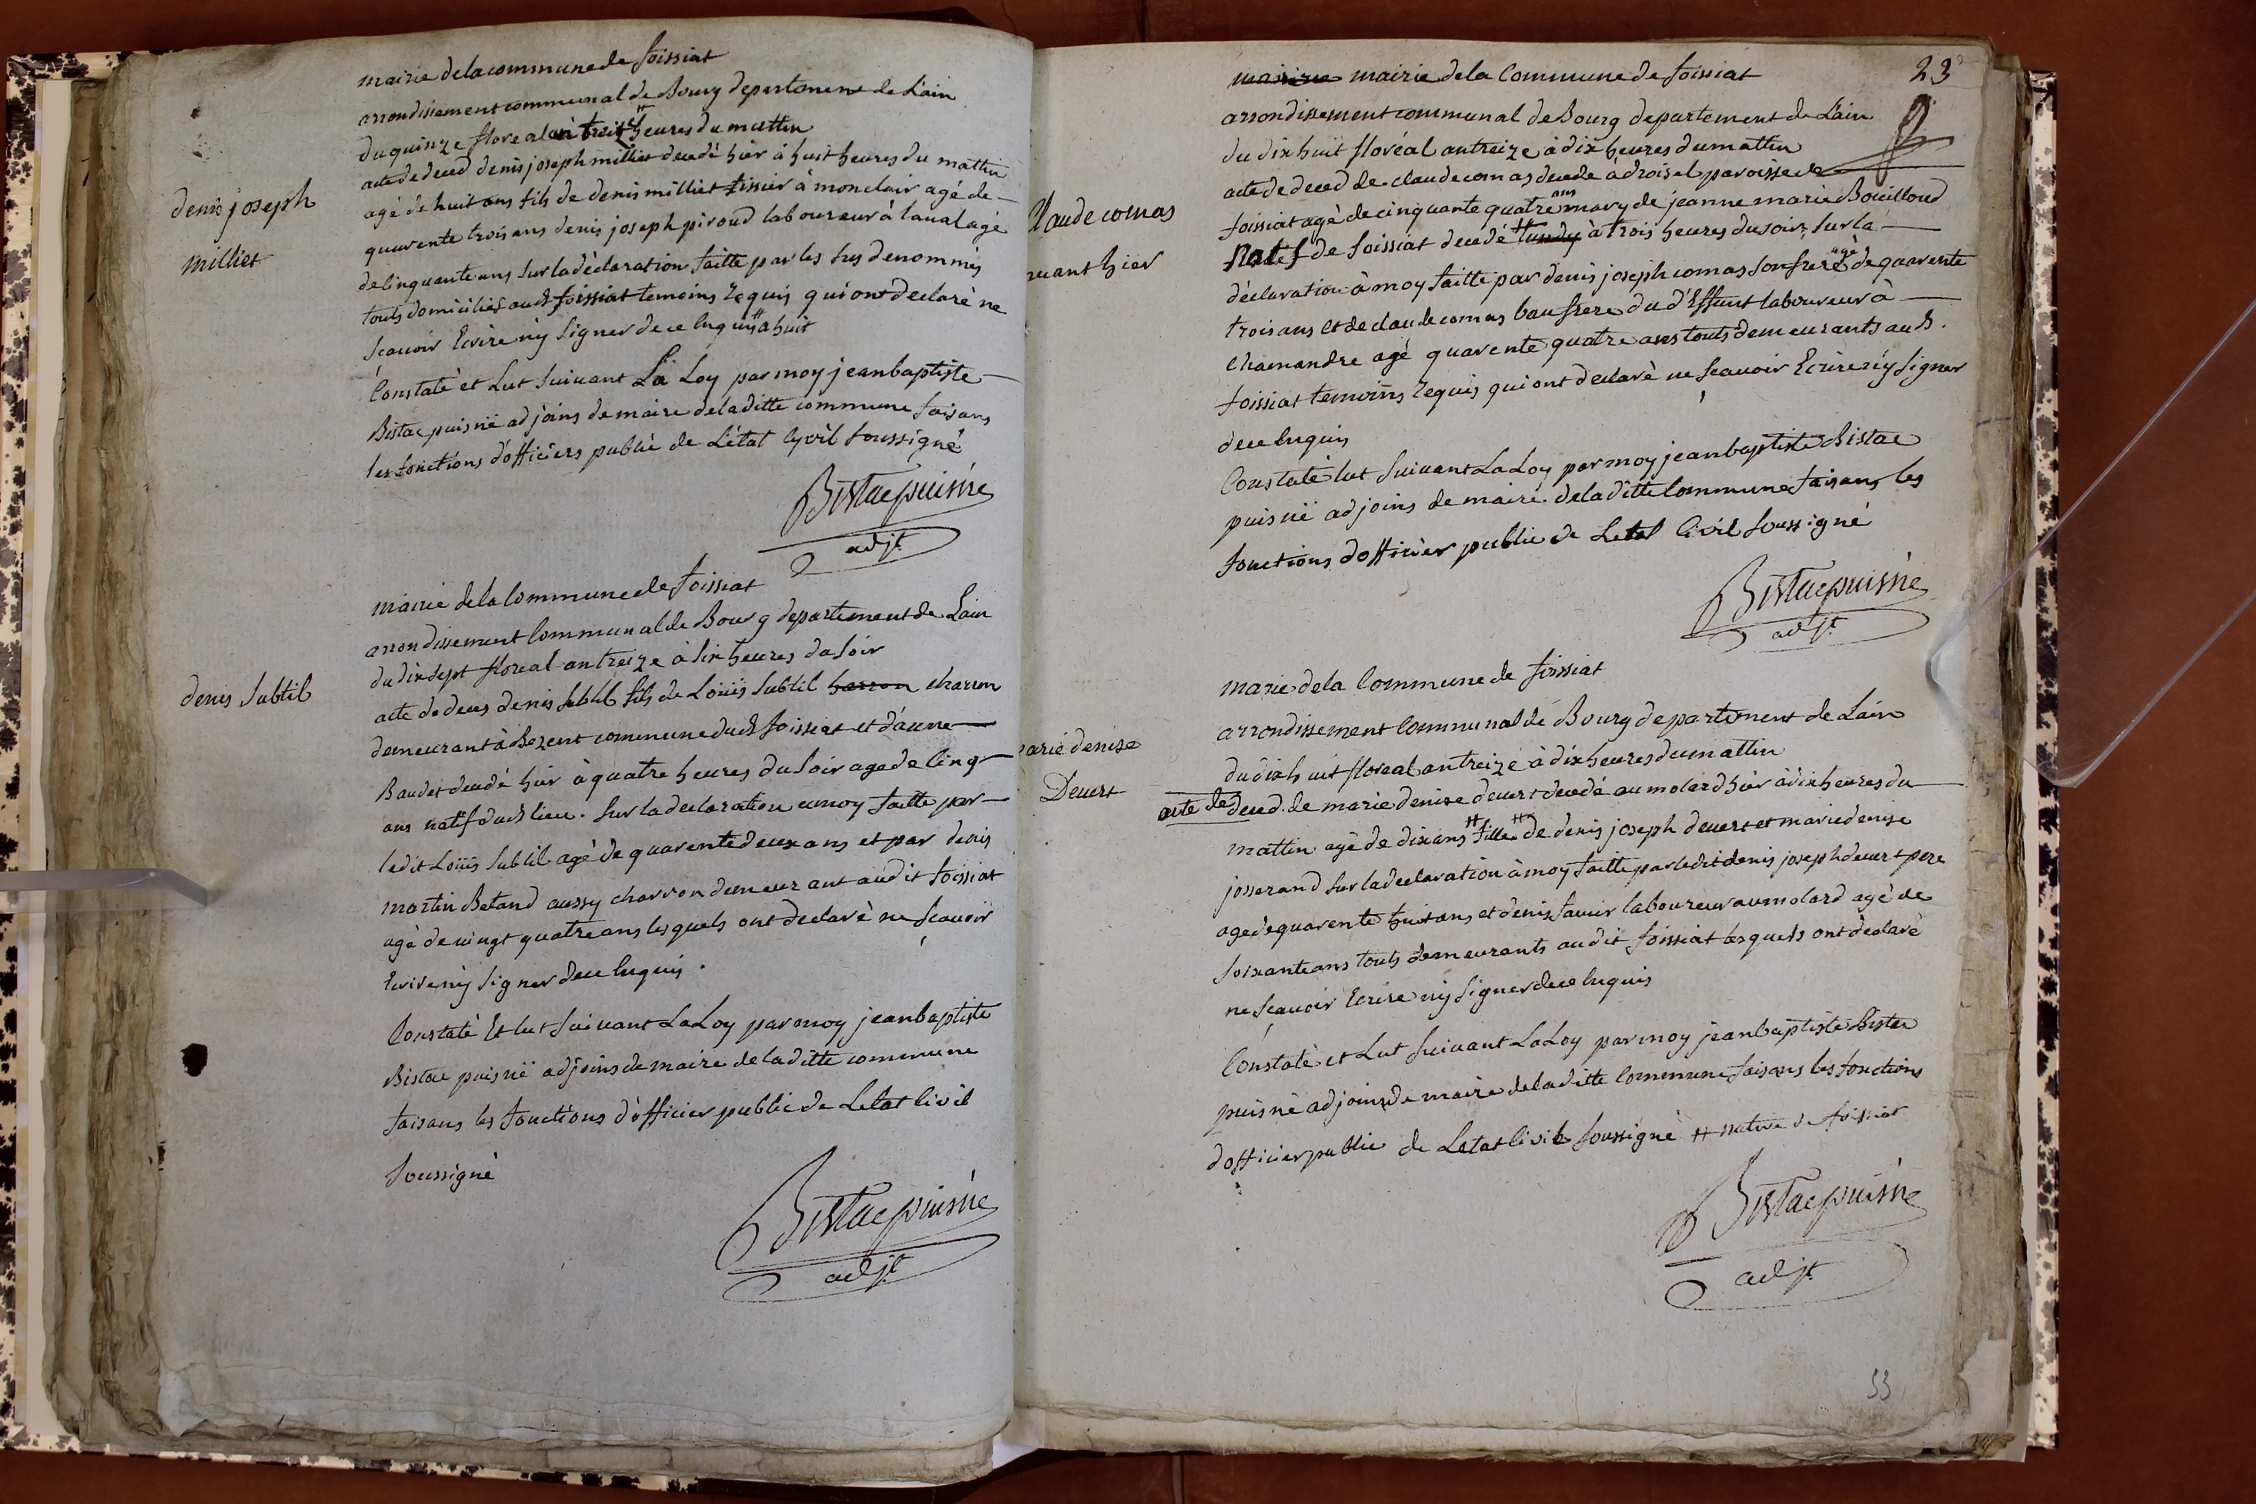 denis joseph
milliet
mairie de la commune de foissiat
arrondissement communal de Bourg departement de L'ain
du quinze floreal an treize # heures du mattin
acte de deced denis joseph milliet decedé hier à huit heures du mattin
agé de huit ans fils de denis milliet tissier à monclair agé de
quarente trois ans denis joseph piroud laboureur à laual agé
de cinquante ans sur la déclaration faitte par les sus denommés
touts domiciliés aud foissiat temoins requis qui ont declaré ne
scauoir Ecrire ny signer de ce Enquis # a huit
Constaté et Lut suiuant La Loy par moy jean baptiste
Bistac puisné adjoins de maire de la ditte commune faisans
les fonctions d'officiers public de L'état Cyvil soussigné
Bistac puisné
adjt
denis subtil
mairie de la Commune de foissiat
arrondissement Communal de Bourg departement de Lain
du dix sept floreal an treize à six heures du soir
acte de deces denis subtil fils de Loüis subtil barron charron
demeurant à Bezent commune dud foissiat et d'anne
Baudet decedé hier à quatre heures du soir age de Cinq
ans natif dud lieu. sur la declaration a moy faitte par
ledit Loüis subtil agé de quarente deux ans et par denis
martin Betand aussy charron demeurant audit foissiat
agé de uingt quatre ans lesquels ont declaré ne scauoir
Ecrire ny signer de ce Enquis.
Constaté Et lut suiuant La Loy par moy jean baptiste
Bistac puisné adjoins de maire de la ditte commune
faisans les fonctions d'officier public de Letat Civil
soussigné
Bistac puisné
adjt
23
Claude comas
auant hier
mairie mairie de la Commune de foissiat
arrondissement communal de Bourg departement de Lain
du dix huit floréal an treize à dix heures du mattin
acte de deced de claude comas decede à droisel paroisse de
foissiat agé de cinquante quatre ans mary de jeanne marie Bouilloud
Natif de foissiat decedé # à trois heures du soir, sur la
déclaration à moy faitte par denis joseph comas son frere agé de quarente
trois ans et de claude comas baufrere du d'Effunt laboureur à
Chamandre agé quarente quatre ans touts demeurants aud.
foissiat temoins requis qui ont declaré ne scauoir Ecrire ny signer
de ce Enquis
Constaté lut suiuant La Loy par moy jean baptiste Bistac
puisné adjoins de maire de la ditte Commune faisans les
fonctions d'officier public de Letat Civil soussigné
Bistac puisné
adjt
marie denise
Deuert
marie de la Commune de foissiat
arrondissement Communal de Bourg departement de Lain
du dix huit floreal an treize à dix heures du mattin
acte de deced. de marie denise deuert decedé au molard hier à dix heures du
mattin agé de dix ans # fille # de denis joseph deuert et marie denise
josserand sur la declaration à moy faitte par ledit denis joseph deuert pere
age de quarente huit ans et denis fauier laboureur au molard agé de
soixante ans touts demeurants audit foissiat lesquels ont declaré
ne scauoir Ecrire ny signer de ce Enquis
Constaté et Lut suiuant La Loy par moy jean baptiste Bistac
puisné adjoins de maire de la ditte Commune faisans les fonctions
d'officier public de Letat Civil soussigné # native de foissiat
Bistac puisné
adjt
53